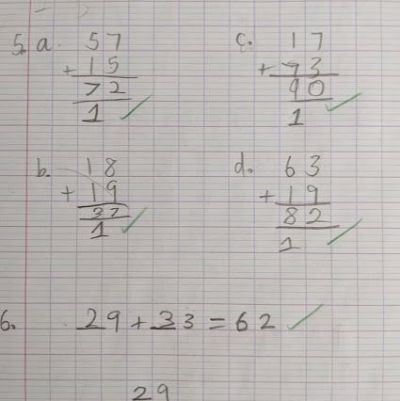 5. a. 57 c. 17
+ 15 + 73
72 90
1 1
b. 18 d. 63
+ 19 + 19
37 82
1 1
6. 29 + 33 = 62
29